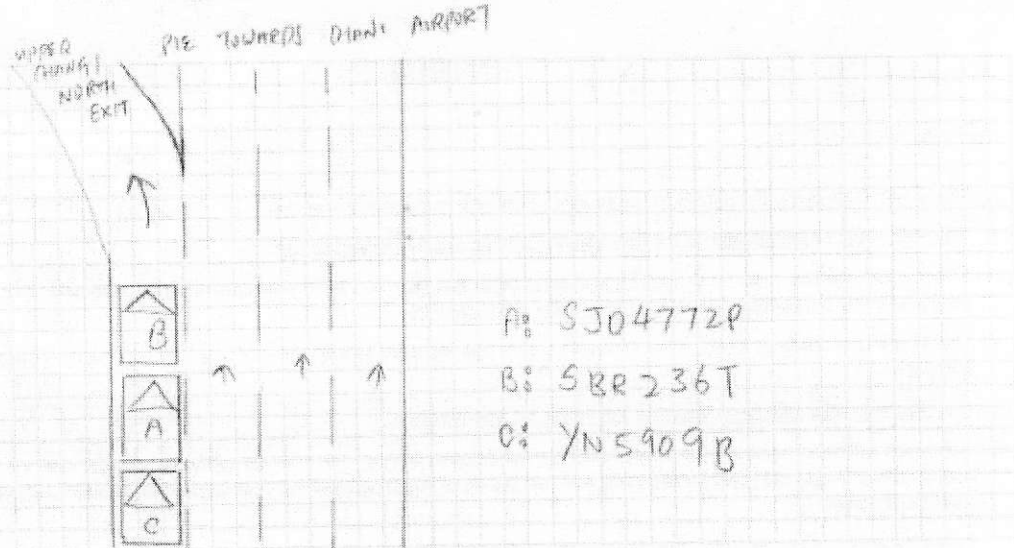 PIE TOWARDS CHANGI AIRPORT
UPPER
CHANGI
NORTH
EXIT
B
A
C
A: SJD4772P
B: SBR236T
C: YN5909B